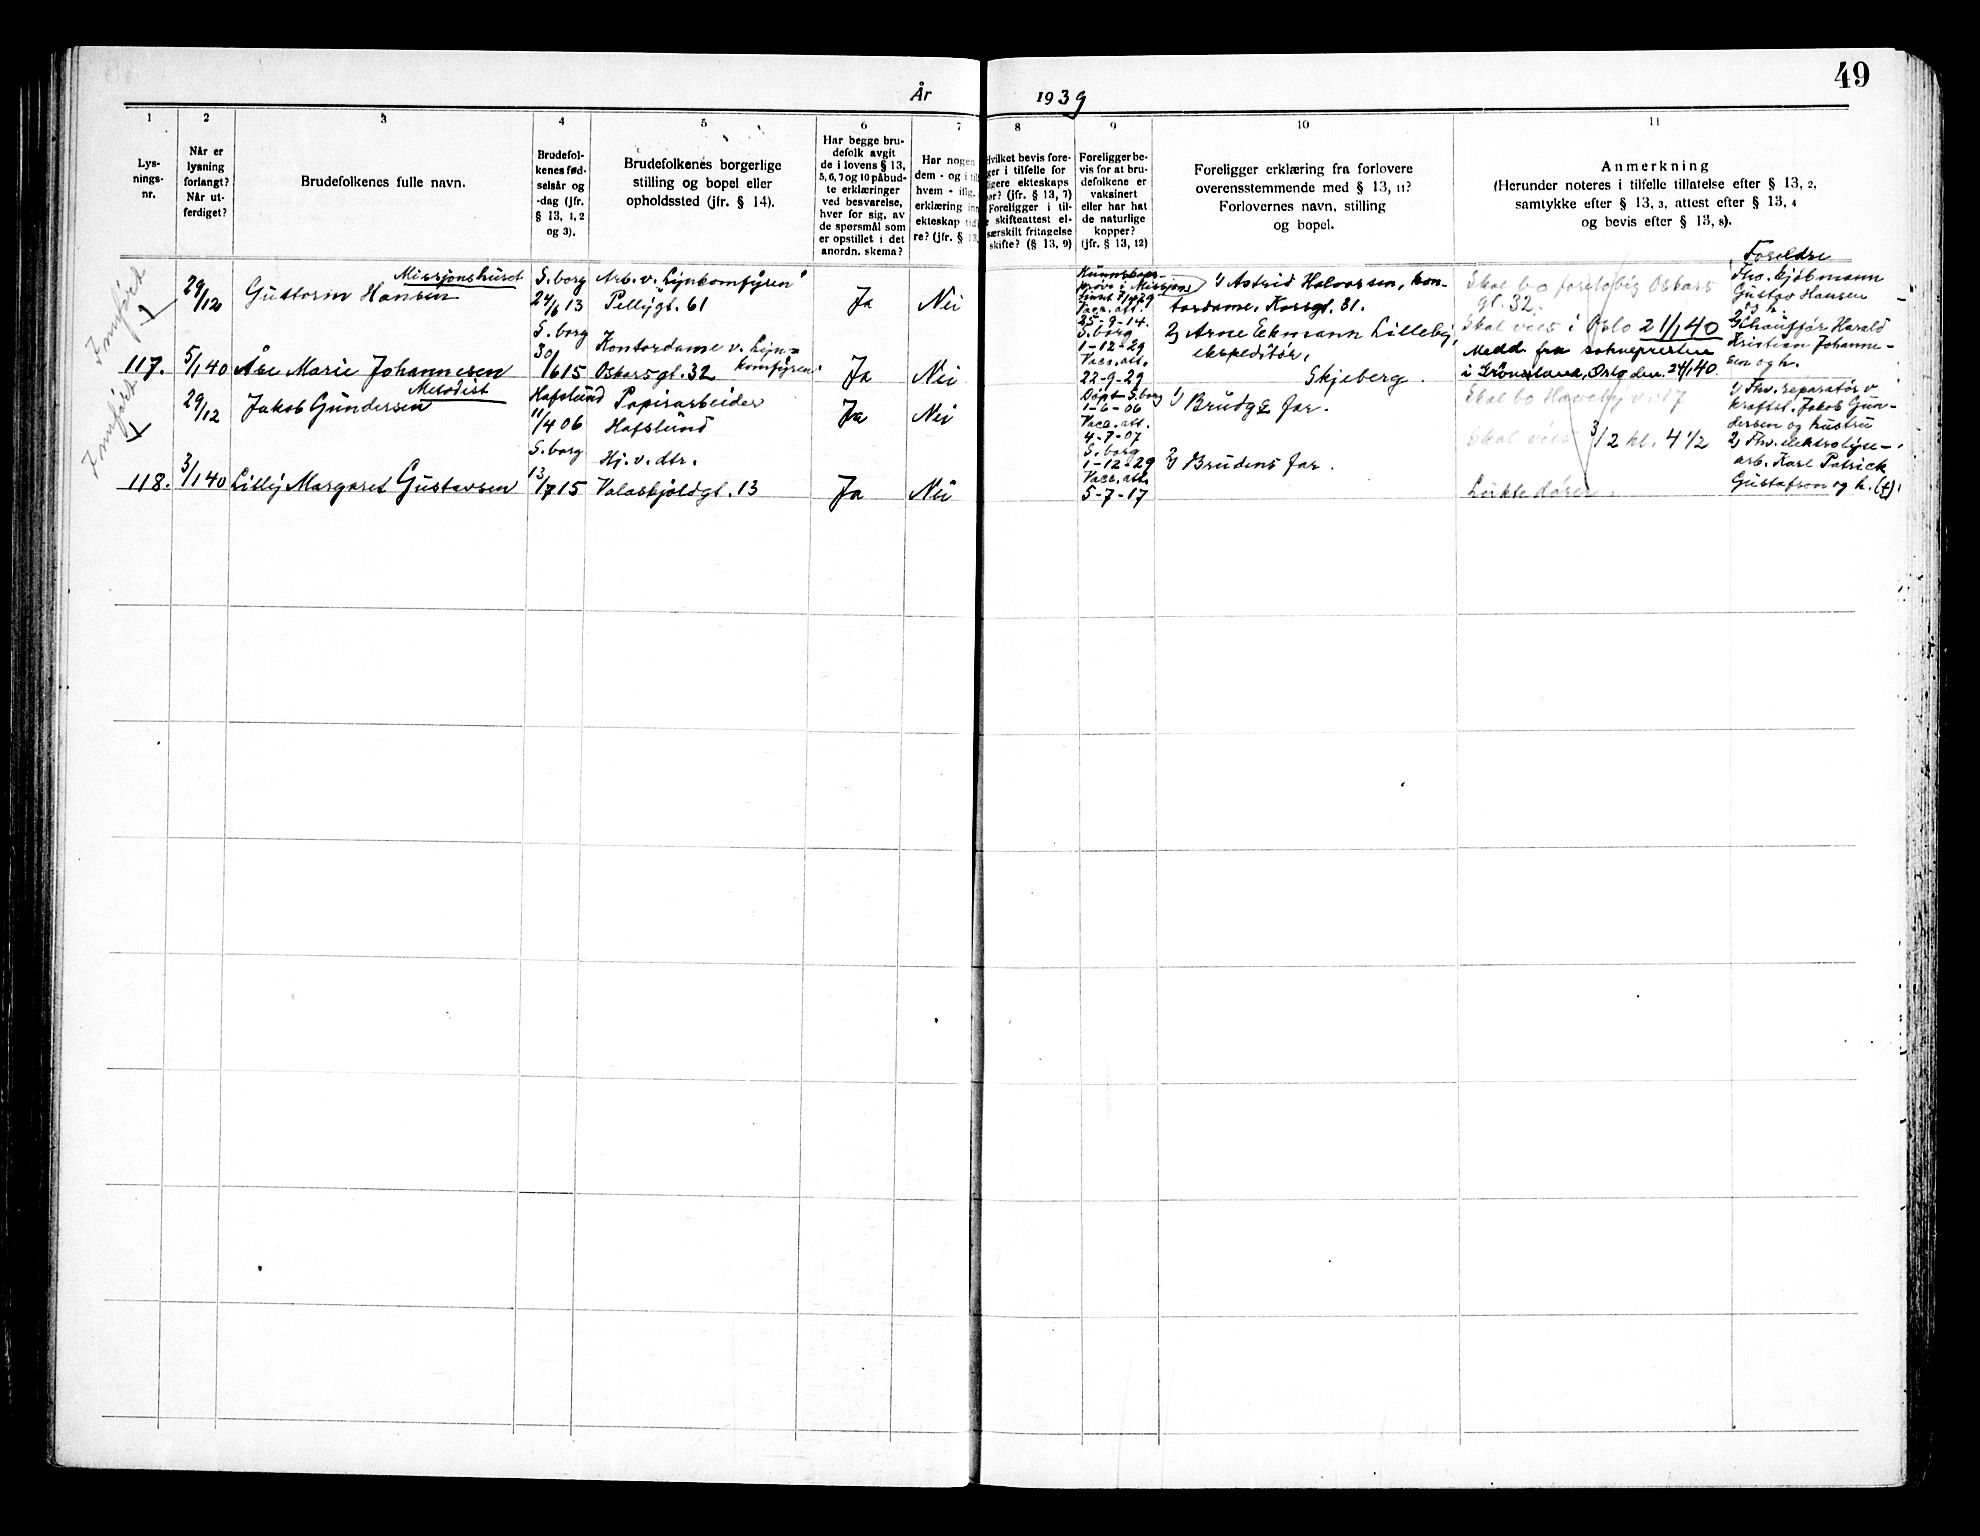 49
År 1939
1
2
3
4
5
6
7
8
9
10
11
Lys-
nings-
nr.
Når er
lysning
forlangt?
Når ut-
ferdiget?
Brudefolkenes fulle navn.
Brudefol-
kenes fød-
selsår og
-dag (jfr.
§ 13, 1, 2
og 3).
Brudefolkenes borgerlige
stilling og bopel eller
opholdssted (jfr. § 14).
Har begge bru-
defolk avgit
de i lovens § 13,
5, 6, 7 og 10 påbud-
te erklæringer
ved besvarelse,
hver for sig, av
de spørsmål som
er opstillet i det
anordn. skema?
Har nogen
dem - og i til
hvem - iflg.
erklæring inn
ekteskap tid
re? (jfr. § 13,
Hvilket bevis fore-
ger i tilfelle for
ligere ekteskaps
or? (jfr. § 13, 7)
Foreligger i til-
e skifteattest el-
særskilt fritagelse
skifte? (§ 13, 9)
Foreligger be-
vis for at bru-
defolkene er
vaksinert
eller har hat
de naturlige
kopper?
(jfr. § 13, 12)
Foreligger erklæring fra forlovere
overensstemmende med § 13, 11?
Forlovernes navn, stilling
og bopel.
Anmerkning
(Herunder noteres i tilfelle tillatelse efter § 13, 2,
samtykke efter § 13, 3, attest efter § 13, 4
og bevis efter § 13, 8).
Innført
29/12
Missjonshuset
Guttorm Hansen
S.borg
24/6 13
Arb. v. "Lynkomfyren"
Pellygt. 61
Ja
Nei
Kunnskaps-
prøve i Missjons-
Vacc. att.
25-9-14.
1) Astrid Halvorsen, kon-
tordame, Korsgt. 31.
Skal bo foreløbig Oskars
gt. 32.
Foreldre
Fhv. kjøbmann
Gustav Hansen
117.
5/1 40
Åse Marie Johannesen
S.borg
30/6 15
Kontordame v. "Lyn-
komfyren"
Oskarsgt. 32
Ja
Nei
S.borg
1-12-29
Vacc. att.
22-9-29
2) Arne Eckmann Lilleby,
ekspeditør,
Skjeberg.
Skal vies i Oslo 21/1 40
Medd. fra soknepresten
i Grønland, Oslo den 24/1 40.
2) Chauffør Harald
Kristian Johanne-
sen og h.
Innført
29/12
Metodist
Jakob Gundersen
Hafslund
11/4 06
Papirarbeider
Hafslund
Ja
Nei
Døpt S.borg
1-6-06
Vacc. att.
4-7-07
1) Brudg.s far.
Skal bo Haveby v. 17
1) Fhv. reparatør v
kraftst. Jakob Gun-
dersen og hustru
118.
3/1 40
Lilly Margaret Gustavsen
S.borg
13/7 15
Hj. v. dtr.
Valaskjoldgt. 13
Ja
Nei
S.borg
1-12-29
Vacc. att.
5-7-17
2) Brudens far.
Skal vies 3/2 kl. 4 1/2
Lukte dører.
2) Fhv. elektrolyse-
arb. Karl Patrick
Gustafson og h. (†).